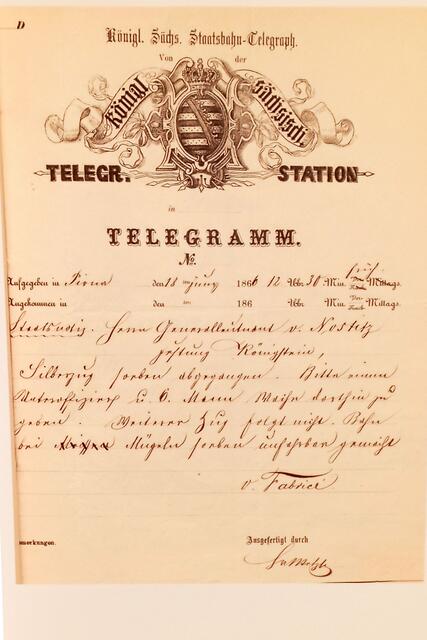 D
Königl. Sächs. Staatsbahn-Telegraph.
Von der
Königl. sächsisch.
TELEGR. STATION
in
TELEGRAMM.
No.
Aufgegeben in Pirna den 18 Juny 1866 12 Uhr 30 Min. früh Vor Nach Mittags.
Angekommen in den 186 Uhr Min. Vor Nach Mittags.
Staatsdig. Herrn Generalleutnant v. Nostitz
Festung Königstein,
Silberzug soeben abgegangen. Bitte einen
Unteroffizier u. 6. Mann Wache dorthin zu
geben. Weiterer Zug folgt nicht. Bahn
bei Mügeln soeben unfahrbar gemacht
v. Fabrice
merkungen.
Ausgefertigt durch